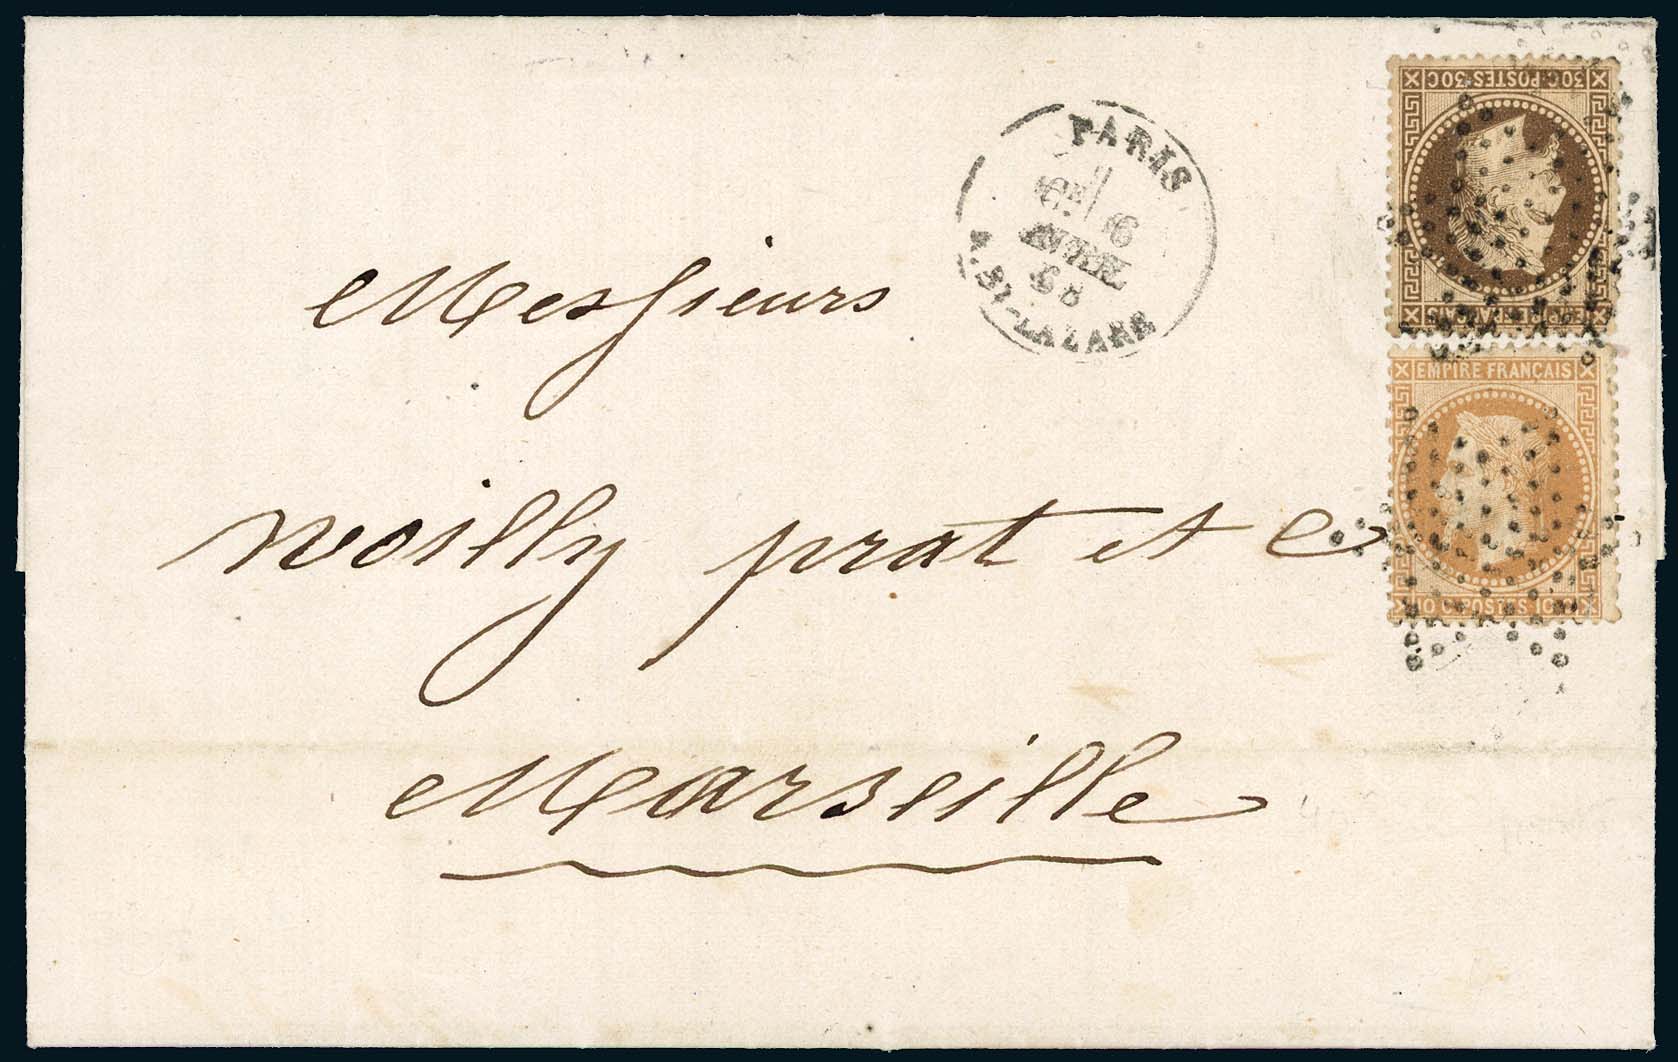 PARIS
6
AVRIL
68
R. ST-LAZARE
30 C POSTES 30 C
EMPIRE FRANÇAIS
EMPIRE FRANÇAIS
10 C POSTES 10 C
Messieurs
Noilly prat et C
Marseille